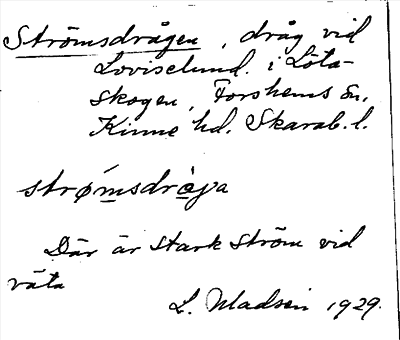 Strömsdrågen, dråg vid
Loviselund i Löta-
skogen, Forshems sn,
Kinne hd. Skarab. l.
strø̀msdrå̀ga
Där är stark ström vid
väta
L. Madsén 1929.